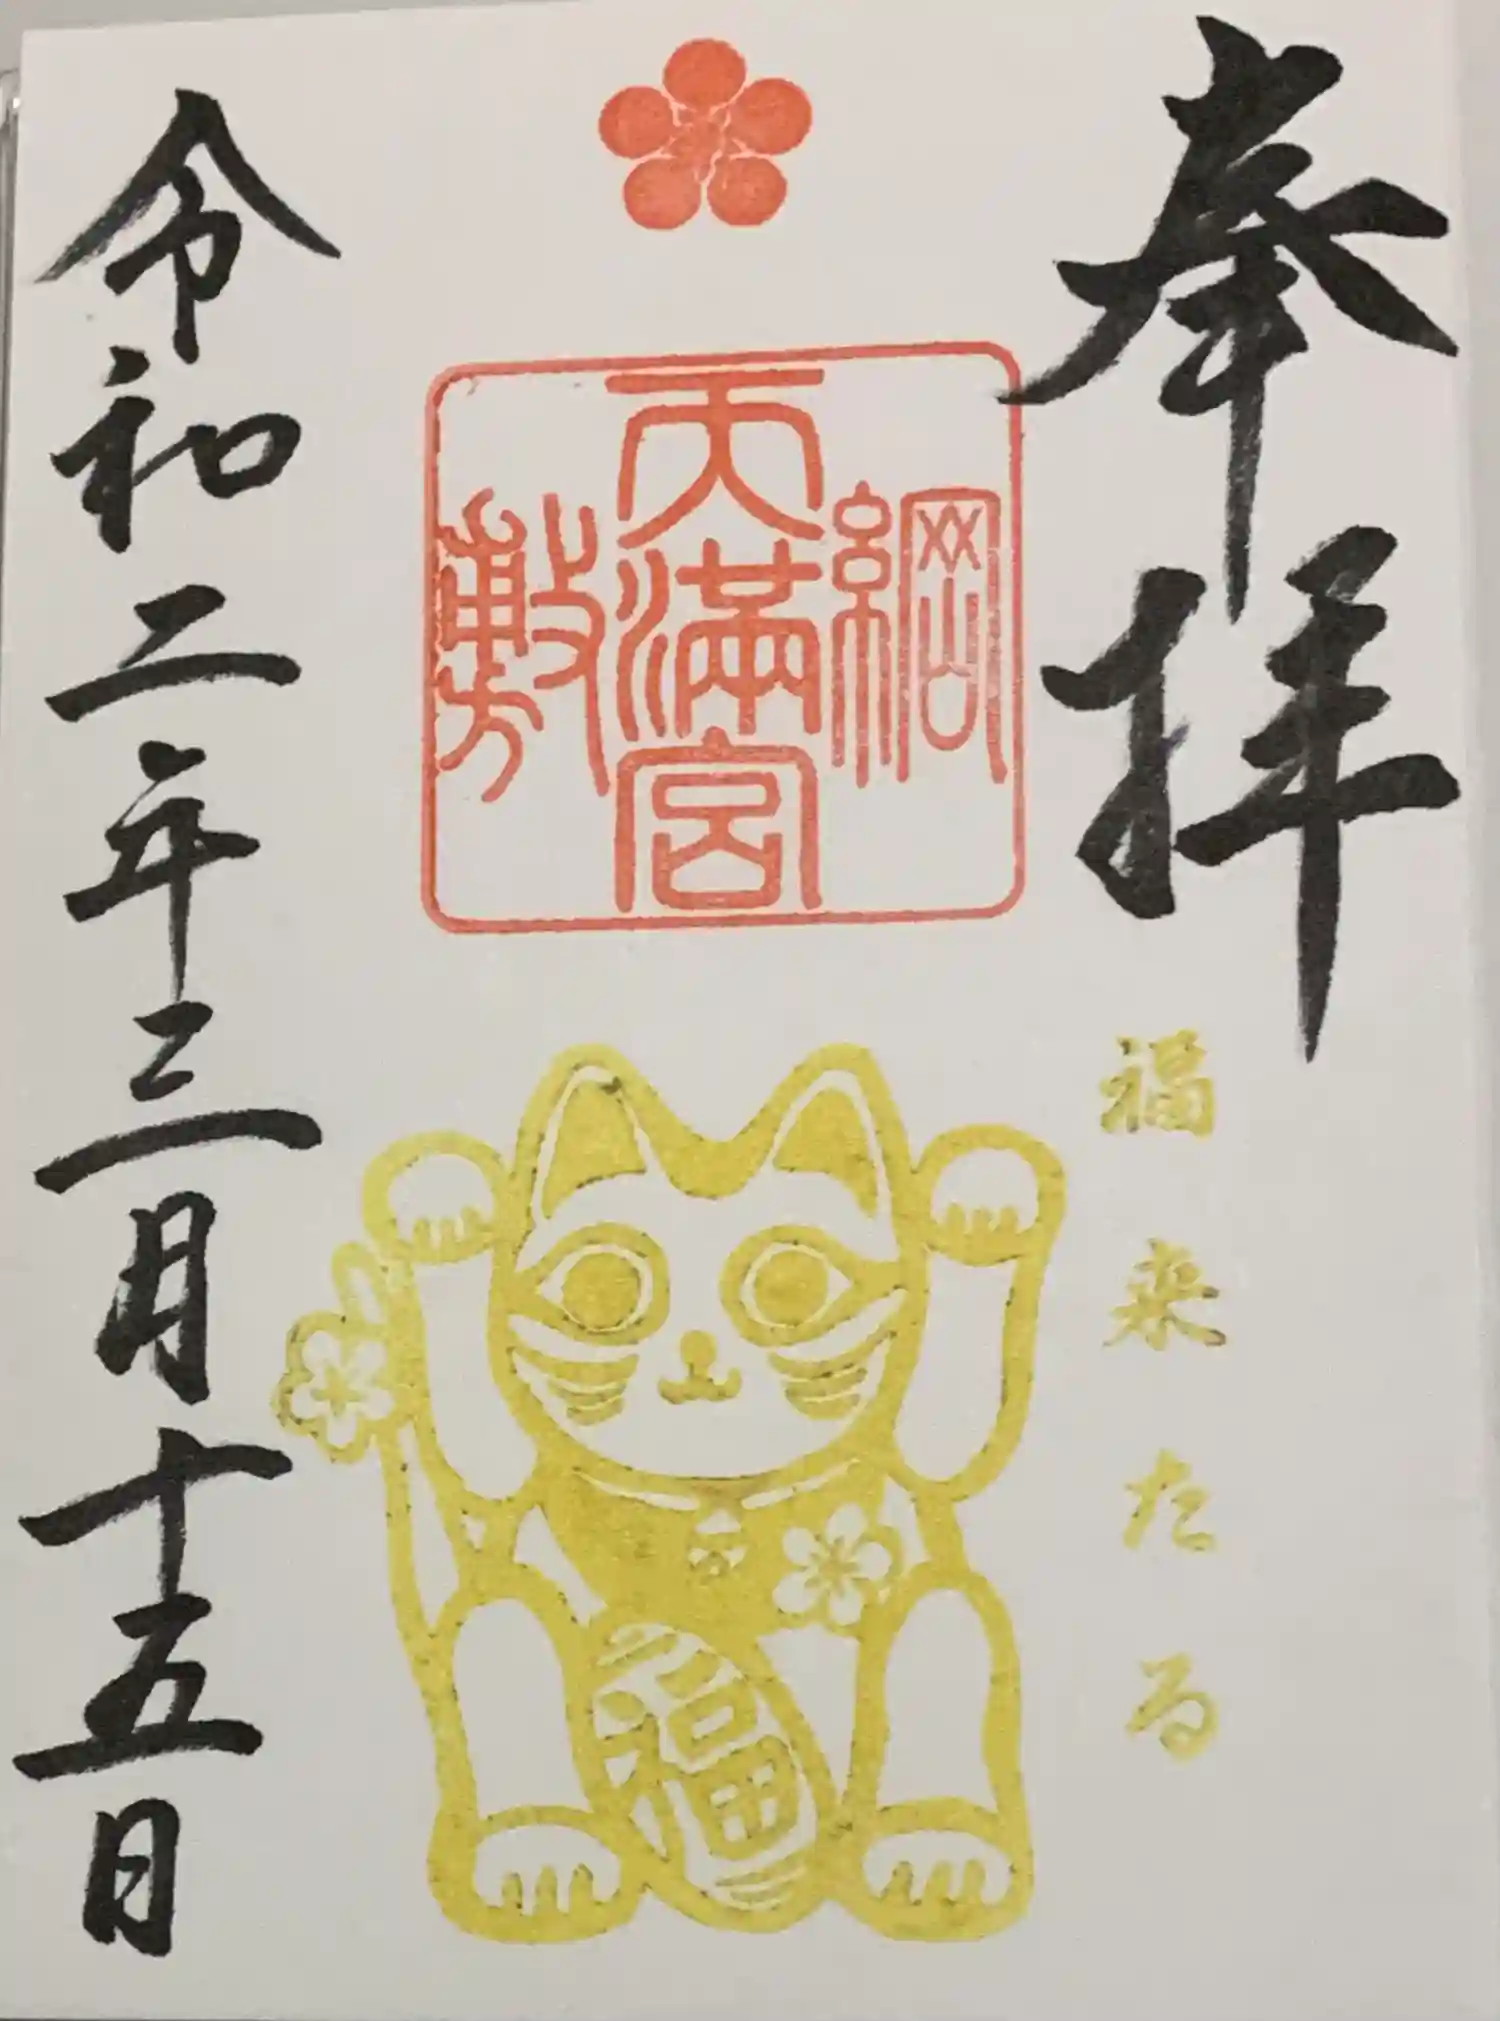 奉拝
福来たる
綱
天満宮
敷
福
令和二年三月十五日